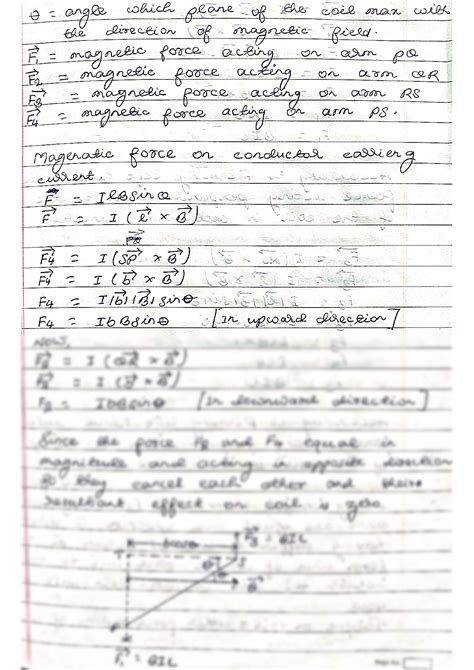 θ = angle which plane of the coil max with
the direction of magnetic field.
F₁⃗ = magnetic force acting on arm PQ
F₂⃗ = magnetic force acting on arm QR
F₃⃗ = magnetic force acting on arm RS
F₄⃗ = magnetic force acting on arm PS.
Mageratic force on conductor carrier g
current.
F = IlBsinθ
F⃗ = I (l⃗ × B⃗)
F₄⃗ = I (SP⃗ × B⃗)
F₄⃗ = I (b⃗ × B⃗)
F₄ = I|b⃗||B⃗|sinθ
F₄ = IbBsinθ [In upward direction]
Now,
= I (QR⃗ × B⃗)
= I (b⃗ × B⃗)
F₂ = IbBsinθ [In downward direction]
Since the force F₂ and F₄ equal in
magnitude and acting in opposite direction
so they cancel each other and their
resultant effect on coil is zero.
bcosθ
F₃⃗ = BIL
T
S
θ
B⃗
P
F₁⃗ = BIL